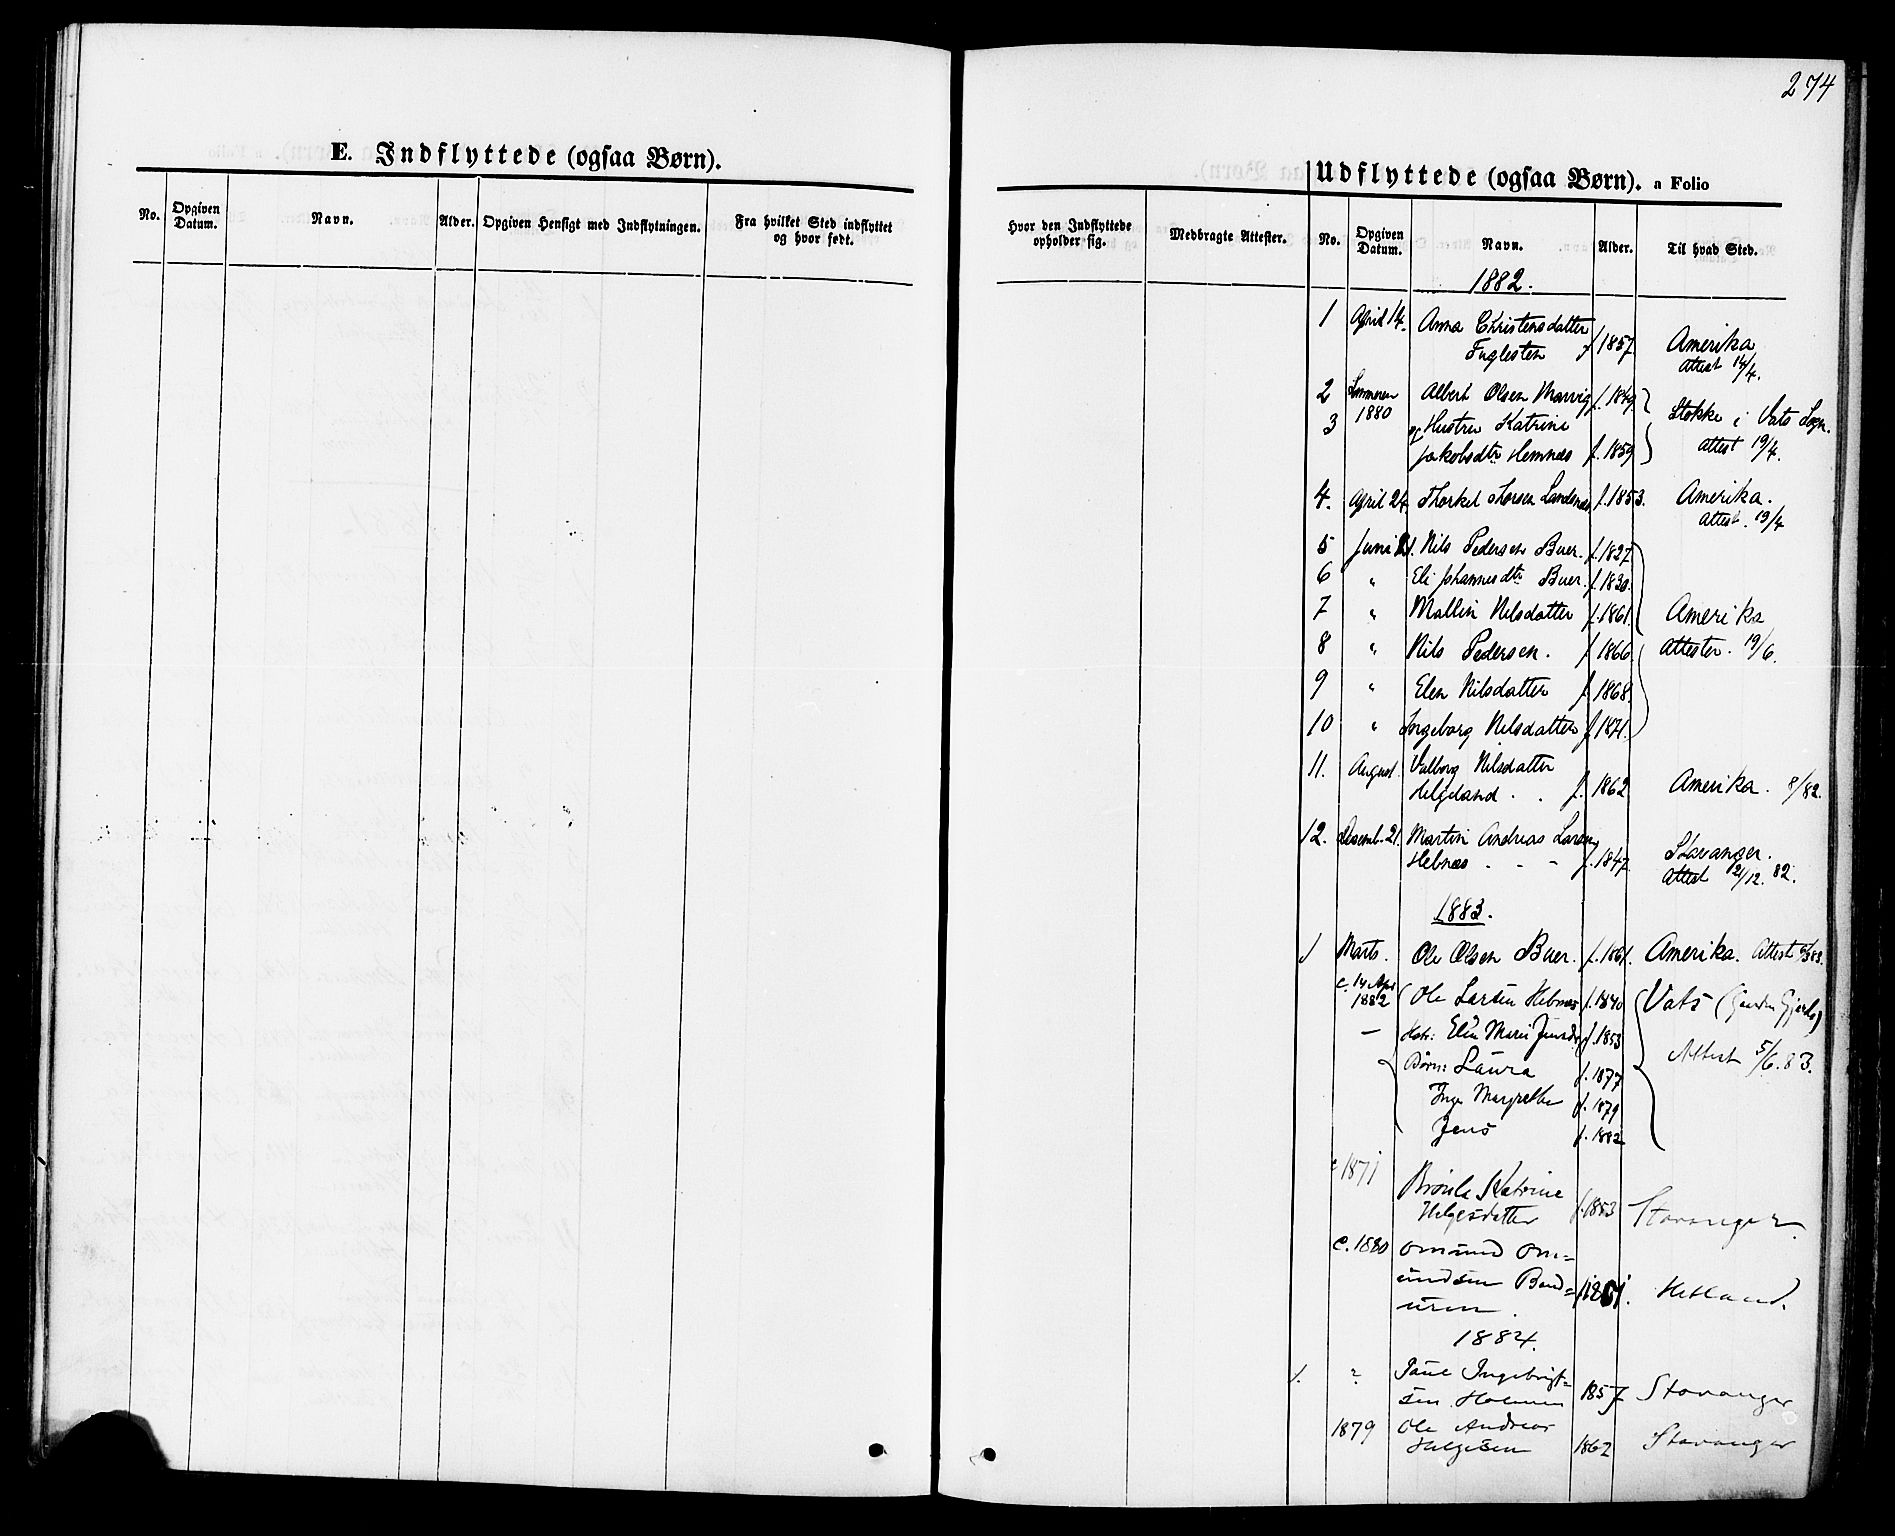 274
E. Indflyttede (ogsaa Børn).
No.
Opgiven
Datum.
Navn.
Alder.
Opgiven Hensigt med Indflytningen.
Fra hvilket Sted indflyttet
og hvor født.
Udflyttede (ogsaa Børn). a Folio
Hvor den Indflyttede
opholder sig.
Medbragte Attester.
No.
Opgiven
Datum.
Navn.
Alder.
Til hvad Sted.
1882.
1 April 14. Anna Christensdatter
Fuglesten f 1857 Amerika
Attest 14/4.
2 Sommeren Albert Olsen Marvig f. 1849
1880 Stokke i Vats Sogn.
3 og Hustru Katrine
Jakobsdtr Hemnæs f. 1859 attest 19/4.
4. April 24 Thorkel Larsen Landsnæs f. 1853. Amerika.
Attest. 19/4
5 Juni 21. Nils Pedersen Buer. f. 1827
6 " Eli Johannesdtr Buer. f. 1830.
7 " Mallin Nilsdatter f. 1861. Amerika
8 " Nils Pedersen. f 1866 Attester. 19/6.
9 " Elen Nilsdatter f. 1868.
10 " Ingeborg Nilsdatter f. 1871.
11. August. Valborg Nilsdatter
Helgeland . . f. 1862 Amerika. 8/82.
12. Decemb. 21. Martin Andreas Larsen
Hebnæs - - - f. 1847. Stavanger.
Attest 21/12. 82.
1883.
1 Marts. Ole Olsen Buer. f. 1861. Amerika. Attest 5/3 83.
c. 14 Apr
1882 Ole Larsen Hebnæs f. 1840 Vats (Gaarden)
— Hstr: Elen Marie Jensdr f. 1853
Børn: Laura f. 1877 Attest 5/6. 83.
Inge Margrethe f. 1879
Jens f. 1882
c 1871
Brønla Katrine
Helgesdatter f. 1853 Stavanger.
c. 1880 Omund Om=
undsen Band=
uren. 1861. Hetland.
1884.
1. ? Paul Ingebrigt=
sen Holmen 1857 Stavanger
1879 Ole Andreas
Helgesen 1862 Stavanger